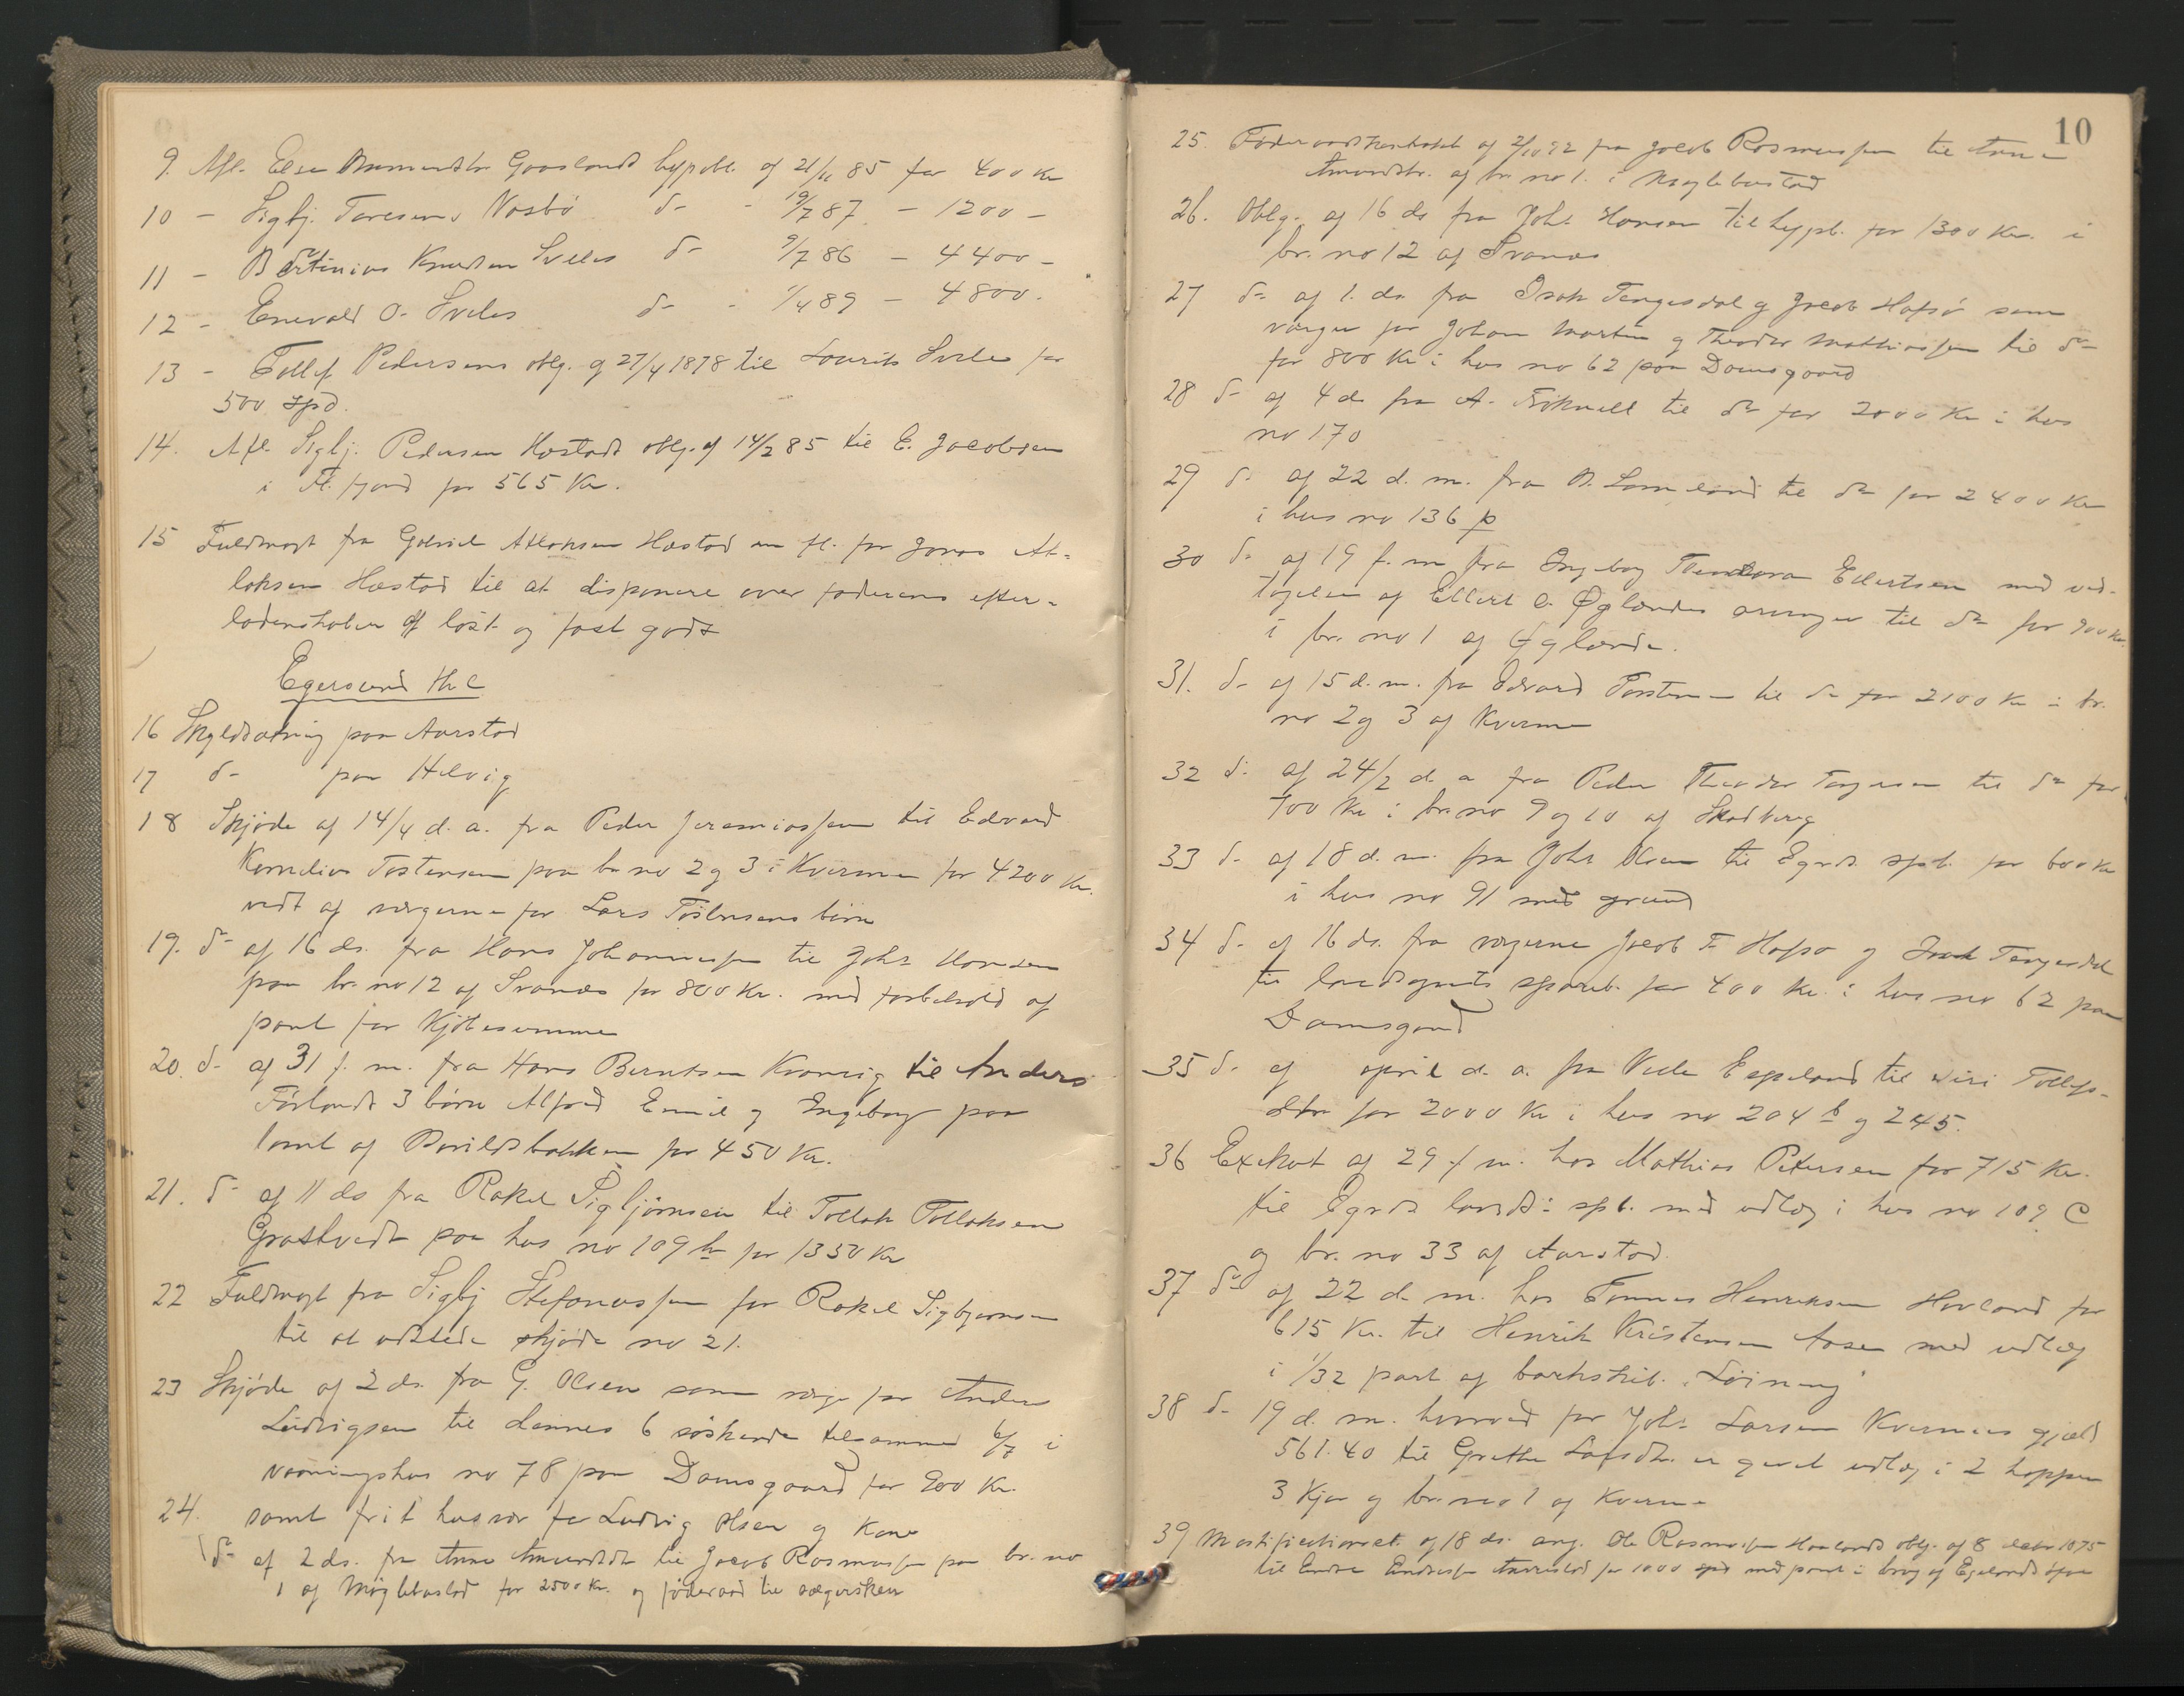 9. Afl. Else Aamundsdtr. Gaaslands hypobl. af 21/11 85 for 400 Kr
10 - Sigbj. Taresens Nosbö d- - 19/7 87 - 1200 -
11 - Bertinius Knudsen Sveles d- 9/7 86 - 4400 -
12 - Enevald O. Sveles d- - 1/4 89 - 4800.
13 - Tollef Pedersens oblg. af 27/4 1878 til Laurits Svele for
500 Spd.
14. Afl. Sigbj. Pedersen Hæstads oblg. af 14/2 85 til E. Jacobsen
i Fl. fjord for 565 Kr.
15 Fuldmagt fra Gabriel Atlaksen Hæstad m fl. for Jonas At-
laksen Hæstad til at disponere over faderens efter-
ladenskaber af löst og fast gods
Egersund thl
16 Skyldsætning paa Aarstad
17 d- paa Helvig
18 Skjöde af 14/4 d. a. fra Peder Jeremiassen til Edvard
Kornelius Tostensen paa br no 2 og 3 i Kverme for 4200 Kr.
vedt. af værgerne for Lars Tostensens börn
19. d- af 16 ds. fra Hans Johannessen til Johs Hansen
paa br. no 12 af Svanæs for 800 Kr. med forbehold af
pant for Kjöbesummen
20. d- af 31 f. m. fra Hans Berntsen Kvanvig til Anders
Förlands 3 börn Alfred Emil og Ingeborg paa
tomt af Bovildsbakken for 450 Kr.
21. d- af 11 ds fra Rakel Sigbjörnsen til Tollak Tollaksen
Grastvedt paa hus no 109 b for 1350 Kr
22 Fuldmagt fra Sigbj Stefanussen for Rakel Sigbjørnsen
til at udstede skjöde no 21.
23 Skjöde af 2 ds. fra G. Olsen som værge for Anders
Ludvigsen til dennes 6 söskende tilsammen 6/7 i
vaaningshus no 78 paa Damsgaard for 200 Kr.
samt frit husvær for Ludvig Olsen og Kone
24. d- af 2 ds. fra Anna Amundsdt til Jacob Rasmussen paa br. no
1 af Møglebustad for 2500 Kr. og föderaad til sælgersken
10
25. Föderaadskontrakt af 2/10 92 fra Jacob Rasmussen til Anna
Amundsdtr. af br. no 1. i Møglebustad
26. Oblg. af 16 ds fra Johs. Hansen til hypb. for 1300 Kr. i
br. no 12 af Svanæs
27 d- af 1. ds fra Isak Tengesdal og Jacob Hafsö som
værger for Johan Martin og Theodor Mathiassen til d-
for 800 Kr i hus no 62 paa Damsgaard
28 d- af 4 ds fra A. til d- for 2000 Kr i hus
no 170
29 d- af 22 d. m. fra B. til d- for 2400 Kr
i hus no 136 p
30 d- af 19 f. m fra Ingeborg Theodora Ellertsen med ved-
tagelse af Ellert O. Øglændes arvinger til d- for 900 Kr.
i br. no 1 af Øglænde.
31. d- af 15 d. m. fra Edvard Tostensen til d- for 2100 Kr i br.
no 2 og 3 af Kverme
32 d- af 24/2 d. a fra Peder Theodor Torgersen til d- for
700 Kr i br. no 9 og 10 af Skadberg
33 d- af 18 d. m. fra Johs Olsen til Egrds. spb. for 600 Kr
i hus no 91 med grund
34 d- af 16 ds. fra værgerne Jacob T. Hafsö og Isak Tengesdal
til landsognets spareb. for 400 Kr. i hus no 62 paa
Damsgaard
35 d- af april d. a. fra Vilh Egeland til Siri Tollefs-
dtr for 2000 Kr i hus no 204 b og 245.
36 Exekut af 29 f m. hos Mathias Petersen for 715 Kr.
til Egrds lands: spb. med udlæg i hus no 109 C
og br. no 33 af Aarstad.
37 d- af 22 d. m. hos Tønnes Henriksen Hovland for
615 Kr. til Henrik Kristensen Aase med udlæg
i 1/32 part af barkskib. "Löining"
38 d- 19 d. m. hvorved for Johs Larsen Kvermes gjæld
561.40 til Grethe Larsdtr. er gjort udlæg i 2 hopper
3 Kjör og br. no 1 af Kverme
39 Mortifikationsact. af 18 ds. ang. Ole Rasmussen Haalands oblg. af 8 1875
til Endre Endresen for 1000 spd med pant i brug af Egelandsdal